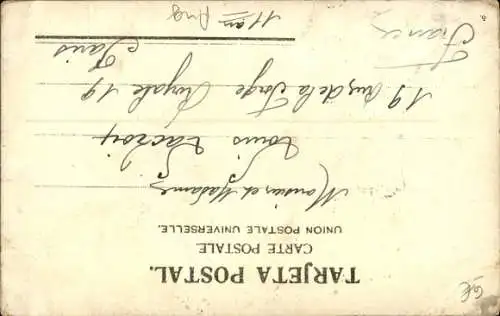 TARJETA POSTAL.
CARTE POSTALE.
UNION POSTALE UNIVERSELLE.
Monsieur et Madame
Louis Lacroix
19 Rue de la Forge Royale 19
Paris
11
France